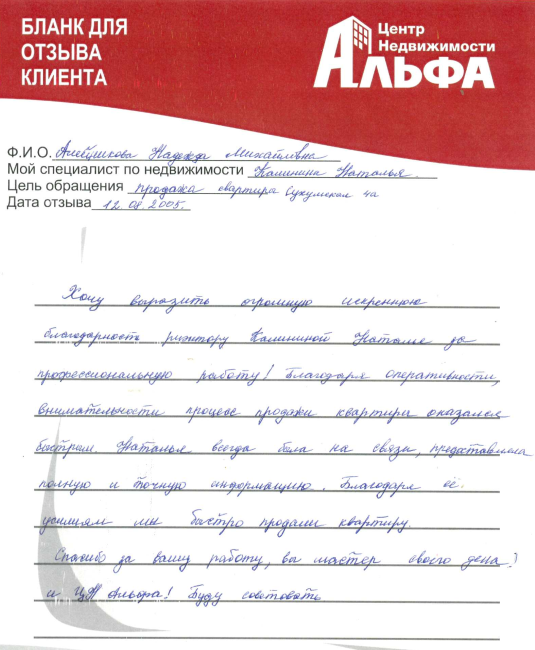 БЛАНК ДЛЯ
ОТЗЫВА
КЛИЕНТА
Центр
Недвижимости
АЛЬФА
Ф.И.О. Алебушкова Надежда Михайловна
Мой специалист по недвижимости Калинина Наталья
Цель обращения продажа квартира Сухумская 4а
Дата отзыва 12.08.2005.
Хочу выразить огромную искреннюю
благодарность риэлтору Калининой Наталье за
профессиональную работу! Благодаря оперативности,
внимательности процесс продажи квартиры оказался
быстрым. Наталья всегда была на связи, предоставляла
полную и точную информацию. Благодаря её
усилиям мы быстро продали квартиру.
Спасибо за вашу работу, вы мастер своего дела!
и ЦН Альфа! Буду советовать